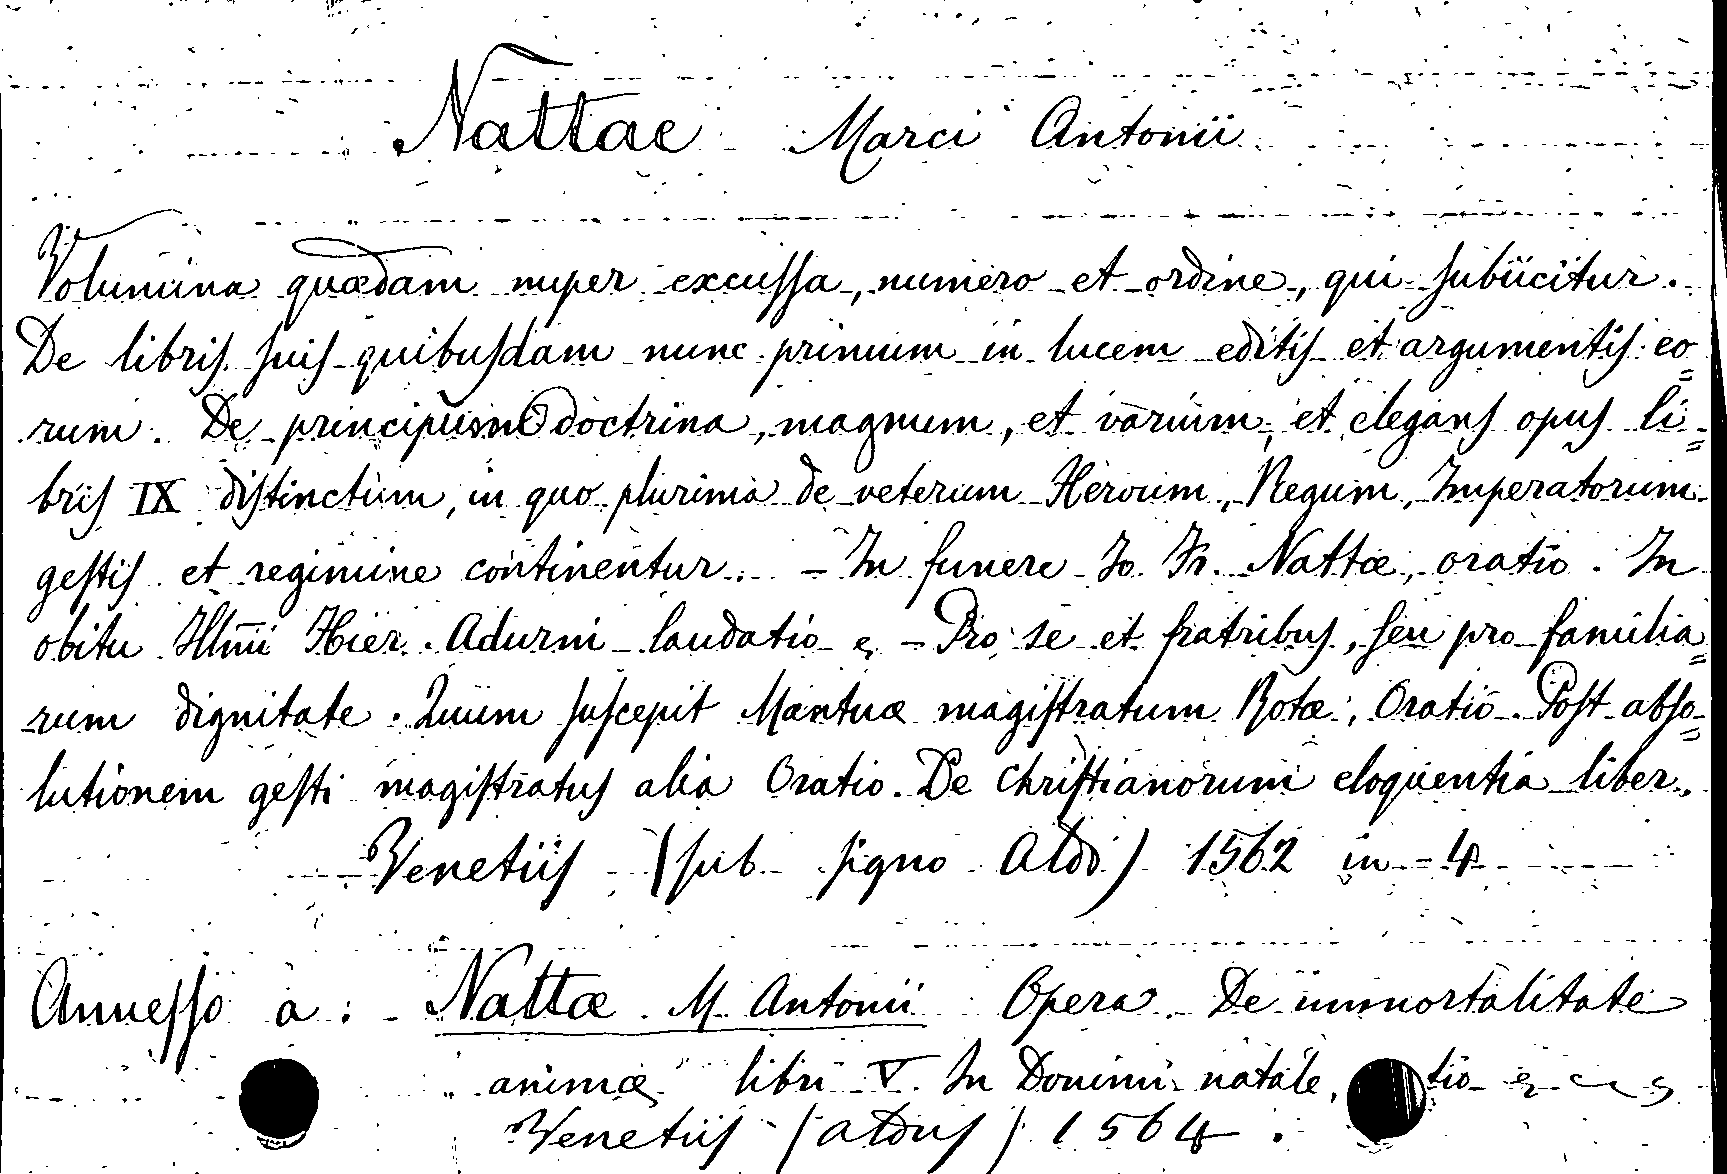 Nattae Marci Antonii
Volumina quædam nuper excussa, numero et ordine, qui subiicitur.
De libris suis quibusdam nunc primum in lucem editis et argumentis eo=
rum. De principum doctrina, magnum, et varium, et elegans opus li=
bris IX distinctum, in quo plurima de veterum Heroum, Regum, Imperatorum
gestis et regimine continentur. - In funere Jo. Fr. Nattæ, oratio. In
obitu Illmi Hier. Adurni laudatio - Pro se et fratribus, seu pro familia=
rum dignitate. Quum suscepit Mantuæ magistratum Rotæ, Oratio. Post abso=
lutionem gesti magistratus alia Oratio. De Christianorum eloquentia liber.
Venetiis (sub signo Aldi) 1562 in-4
Annesso a: Nattæ M. Antonii Opera. De immortalitate
animæ libri V. In Domini natale, tio
Venetiis (Aldus) 1564.